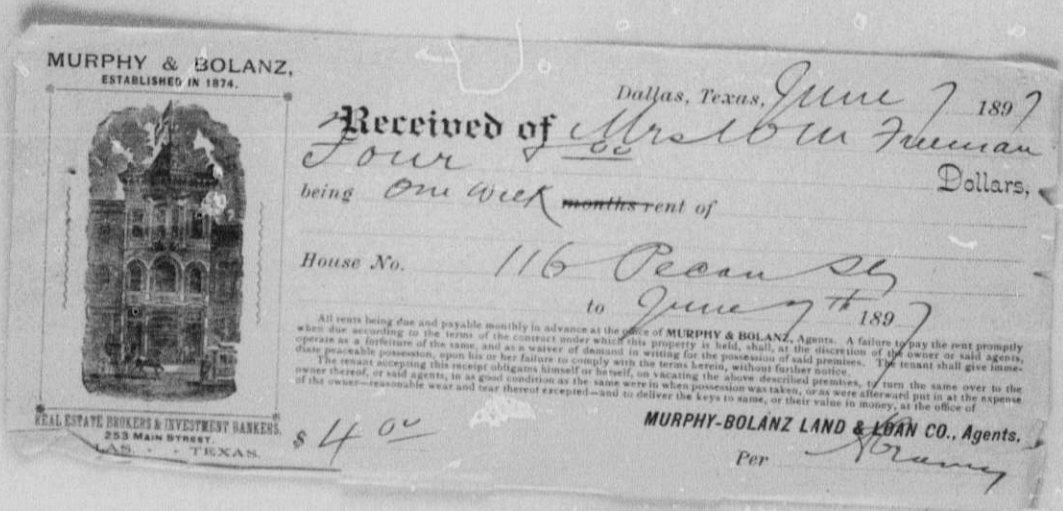 MURPHY & BOLANZ,
ESTABLISHED IN 1874.
Dallas, Texas, June 7 1897
Received of Mrs Wm Freeman
Four 00 Dollars,
being One week months rent of
House No. 116 Pecan St
to June 7th 1897
All rents being due and payable monthly in advance at the office of MURPHY & BOLANZ, Agents. A failure to pay the rent promptly
when due according to the terms of the contract under which this property is held, shall, at the discretion of the owner or said agents,
operate as a forfeiture of the same, and as a waiver of demand in writing for the possession of said premises. The tenant shall give imme-
diate peaceable possession, upon his or her failure to comply with the terms herein, without further notice.
The tenant accepting this receipt obligates himself or herself, on vacating the above described premises, to turn the same over to the
owner thereof, or said agents, in as good condition as the same were in when possession was taken, or as were afterward put in at the expense
of the owner—reasonable wear and tear thereof excepted—and to deliver the keys to same, or their value in money, at the office of
MURPHY-BOLANZ LAND & LOAN CO., Agents.
$ 4 00
Per
REAL ESTATE BROKERS & INVESTMENT BANKERS.
253 MAIN STREET.
LAS. · · TEXAS.